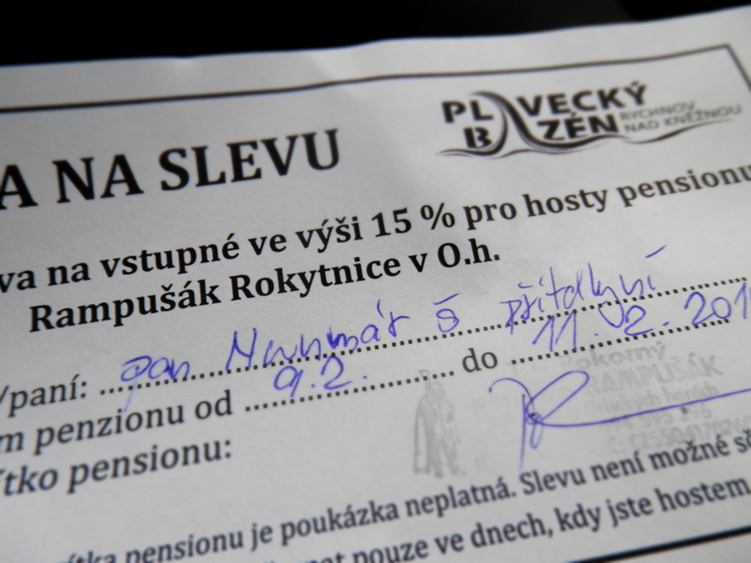 PLAVECKÝ
BAZÉN RYCHNOV
NAD KNĚŽNOU
A NA SLEVU
va na vstupné ve výši 15 % pro hosty pensionu
Rampušák Rokytnice v O.h.
/paní: pan s přítelkyní
m penzionu od 9.2. do 11.02.201
ítko pensionu:
Pokorný
RAMPUŠÁK
ítka pensionu je poukázka neplatná. Slevu není možné s
pouze ve dnech, kdy jste hostem